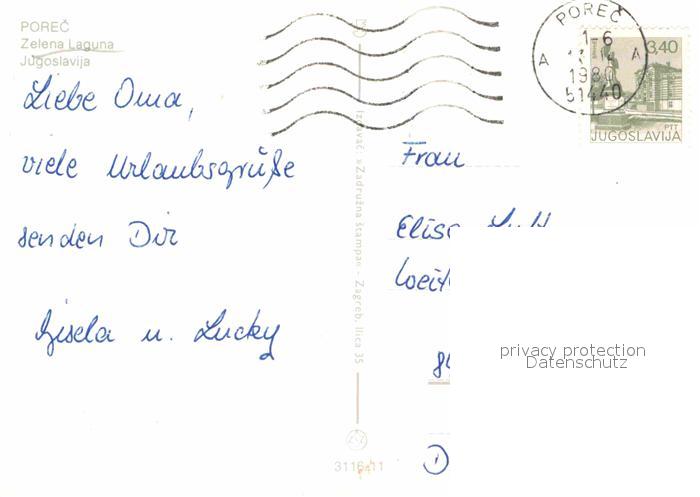 POREČ
Zelena Laguna
Jugoslavija
Liebe Oma,
viele Urlaubsgrüße
senden Dir
Gisela u. Lucky
Izdavač: »Zadružna štampa« - Zagreb, Ilica 35
3116/11
POREČ
1-6
1980
A A
51440
3,40
PTT
JUGOSLAVIJA
Frau
privacy protection
Datenschutz
D